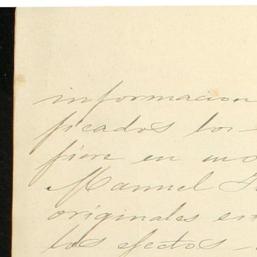 informacion
ficados los
fine en
Manuel
originales en
los efectos